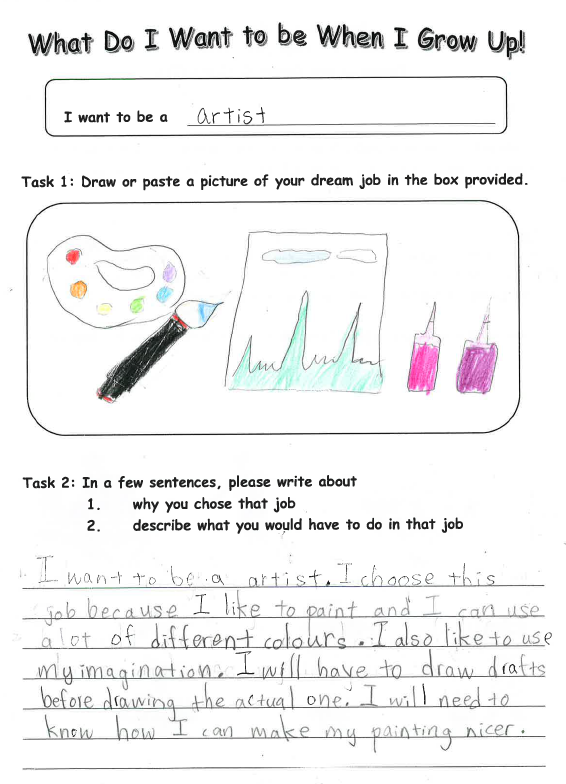 What Do I Want to be When I Grow Up!
I want to be a artist
Task 1: Draw or paste a picture of your dream job in the box provided.
Task 2: In a few sentences, please write about
1. why you chose that job
2. describe what you would have to do in that job
I want to be a artist. I choose this
job because I like to paint and I can use
a lot of different colours. I also like to use
my imagination. I will have to draw drafts
before drawing the actual one. I will need to
know how I can make my painting nicer.